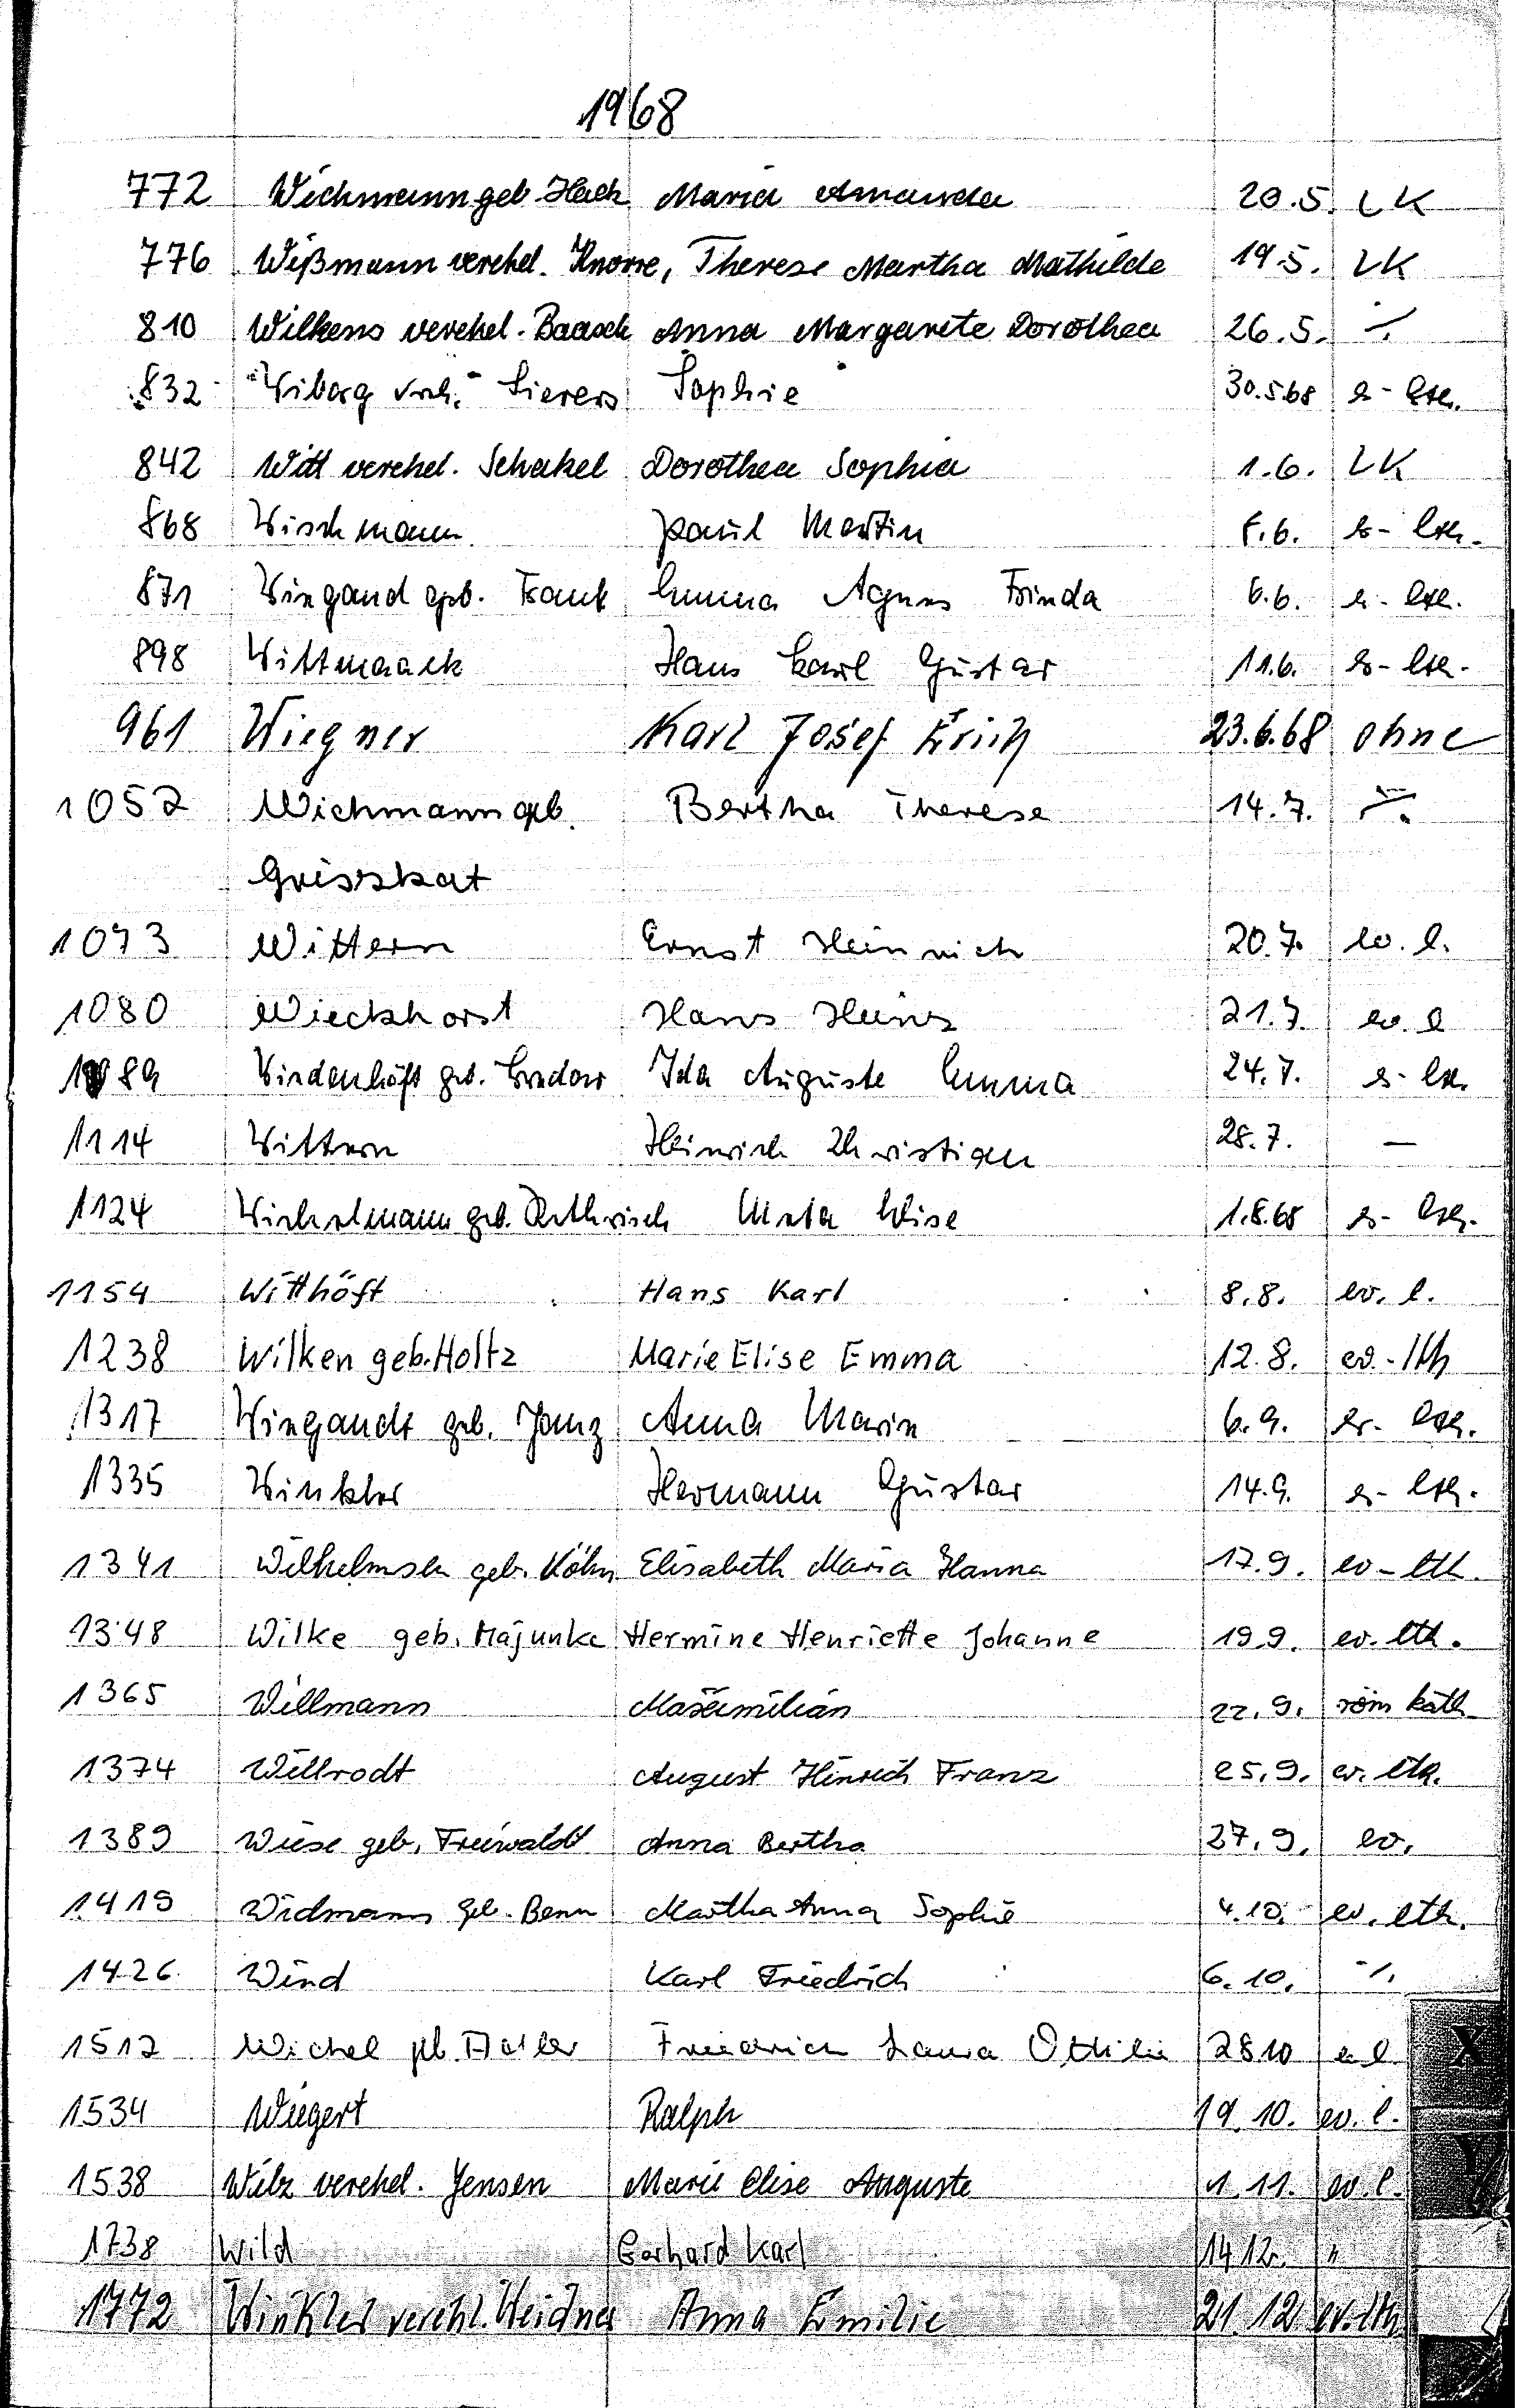 1968
772 Wichmann geb. Hack Maria Amanda 20.5. LK
776 Wißmann verehel. Knorre, Therese Martha Mathilde 19.5. LK
810 Wilkens verehel. Baasch Anna Margarete Dorothea 26.5. ./.
832 Wiborg vreh. Sievers Sophie 30.5.68 ev-lth.
842 Witt verehel. Schakel Dorothea Sophia 1.6. LK
868 Wischmann Paul Martin 5.6. ev-lth.
871 Wiegand geb. Frank Emma Agnes Frieda 6.6. ev-lth.
898 Wittmaack Hans Karl Gustav 11.6. ev-lth.
961 Wiegner Karl Josef Erich 23.6.68 ohne
1052 Wichmann geb. Bertha Therese 14.7. ./.
Grisskat
1073 Wittern Ernst Heinrich 20.7. ev. l.
1080 Wieckhorst Hans Heinz 21.7. ev. l
1089 Wiedenhöft geb. Ida Auguste Emma 24.7. ev-lth.
1114 Wittern Heinrich Christian 28.7. —
1124 Wichelmann geb. Rethwisch Meta Elise 1.8.68 ev-lth.
1154 Witthöft Hans Karl 8.8. ev. l.
1238 Wilken geb. Holtz Marie Elise Emma 12.8. ev.-lth
1317 Wiegandt geb. Janz Anna Marie 6.9. ev-lth.
1335 Winkler Hermann Gustav 14.9. ev-lth.
1341 Wilhelmsen geb. Köhn Elisabeth Maria Hanna 17.9. ev-lth.
1348 Wilke geb. Majunke Hermine Henriette Johanne 19.9. ev. lth.
1365 Willmann Maximilian 22.9. röm kath
1374 Willrodt August Hinrich Franz 25.9. ev. lth.
1389 Wiese geb. Freiwaldt Anna Bertha 27.9. ev.
1419 Widmann geb. Benn Martha Anna Sophie 4.10. ev. lth.
1426 Wind Karl Friedrich 6.10. ./.
1512 Wichel geb. Friedrich Laura Ottilie 28.10 e l
1534 Wiegert Ralph 19.10. ev. l.
1538 Wilz verehel. Jensen Marie Elise Auguste 1.11. ev. l.
1738 Wild Gerhard Karl 14.12. "
1772 Winkler verehl. Weidner Anna Emilie 21.12 ev.lth
X
Y